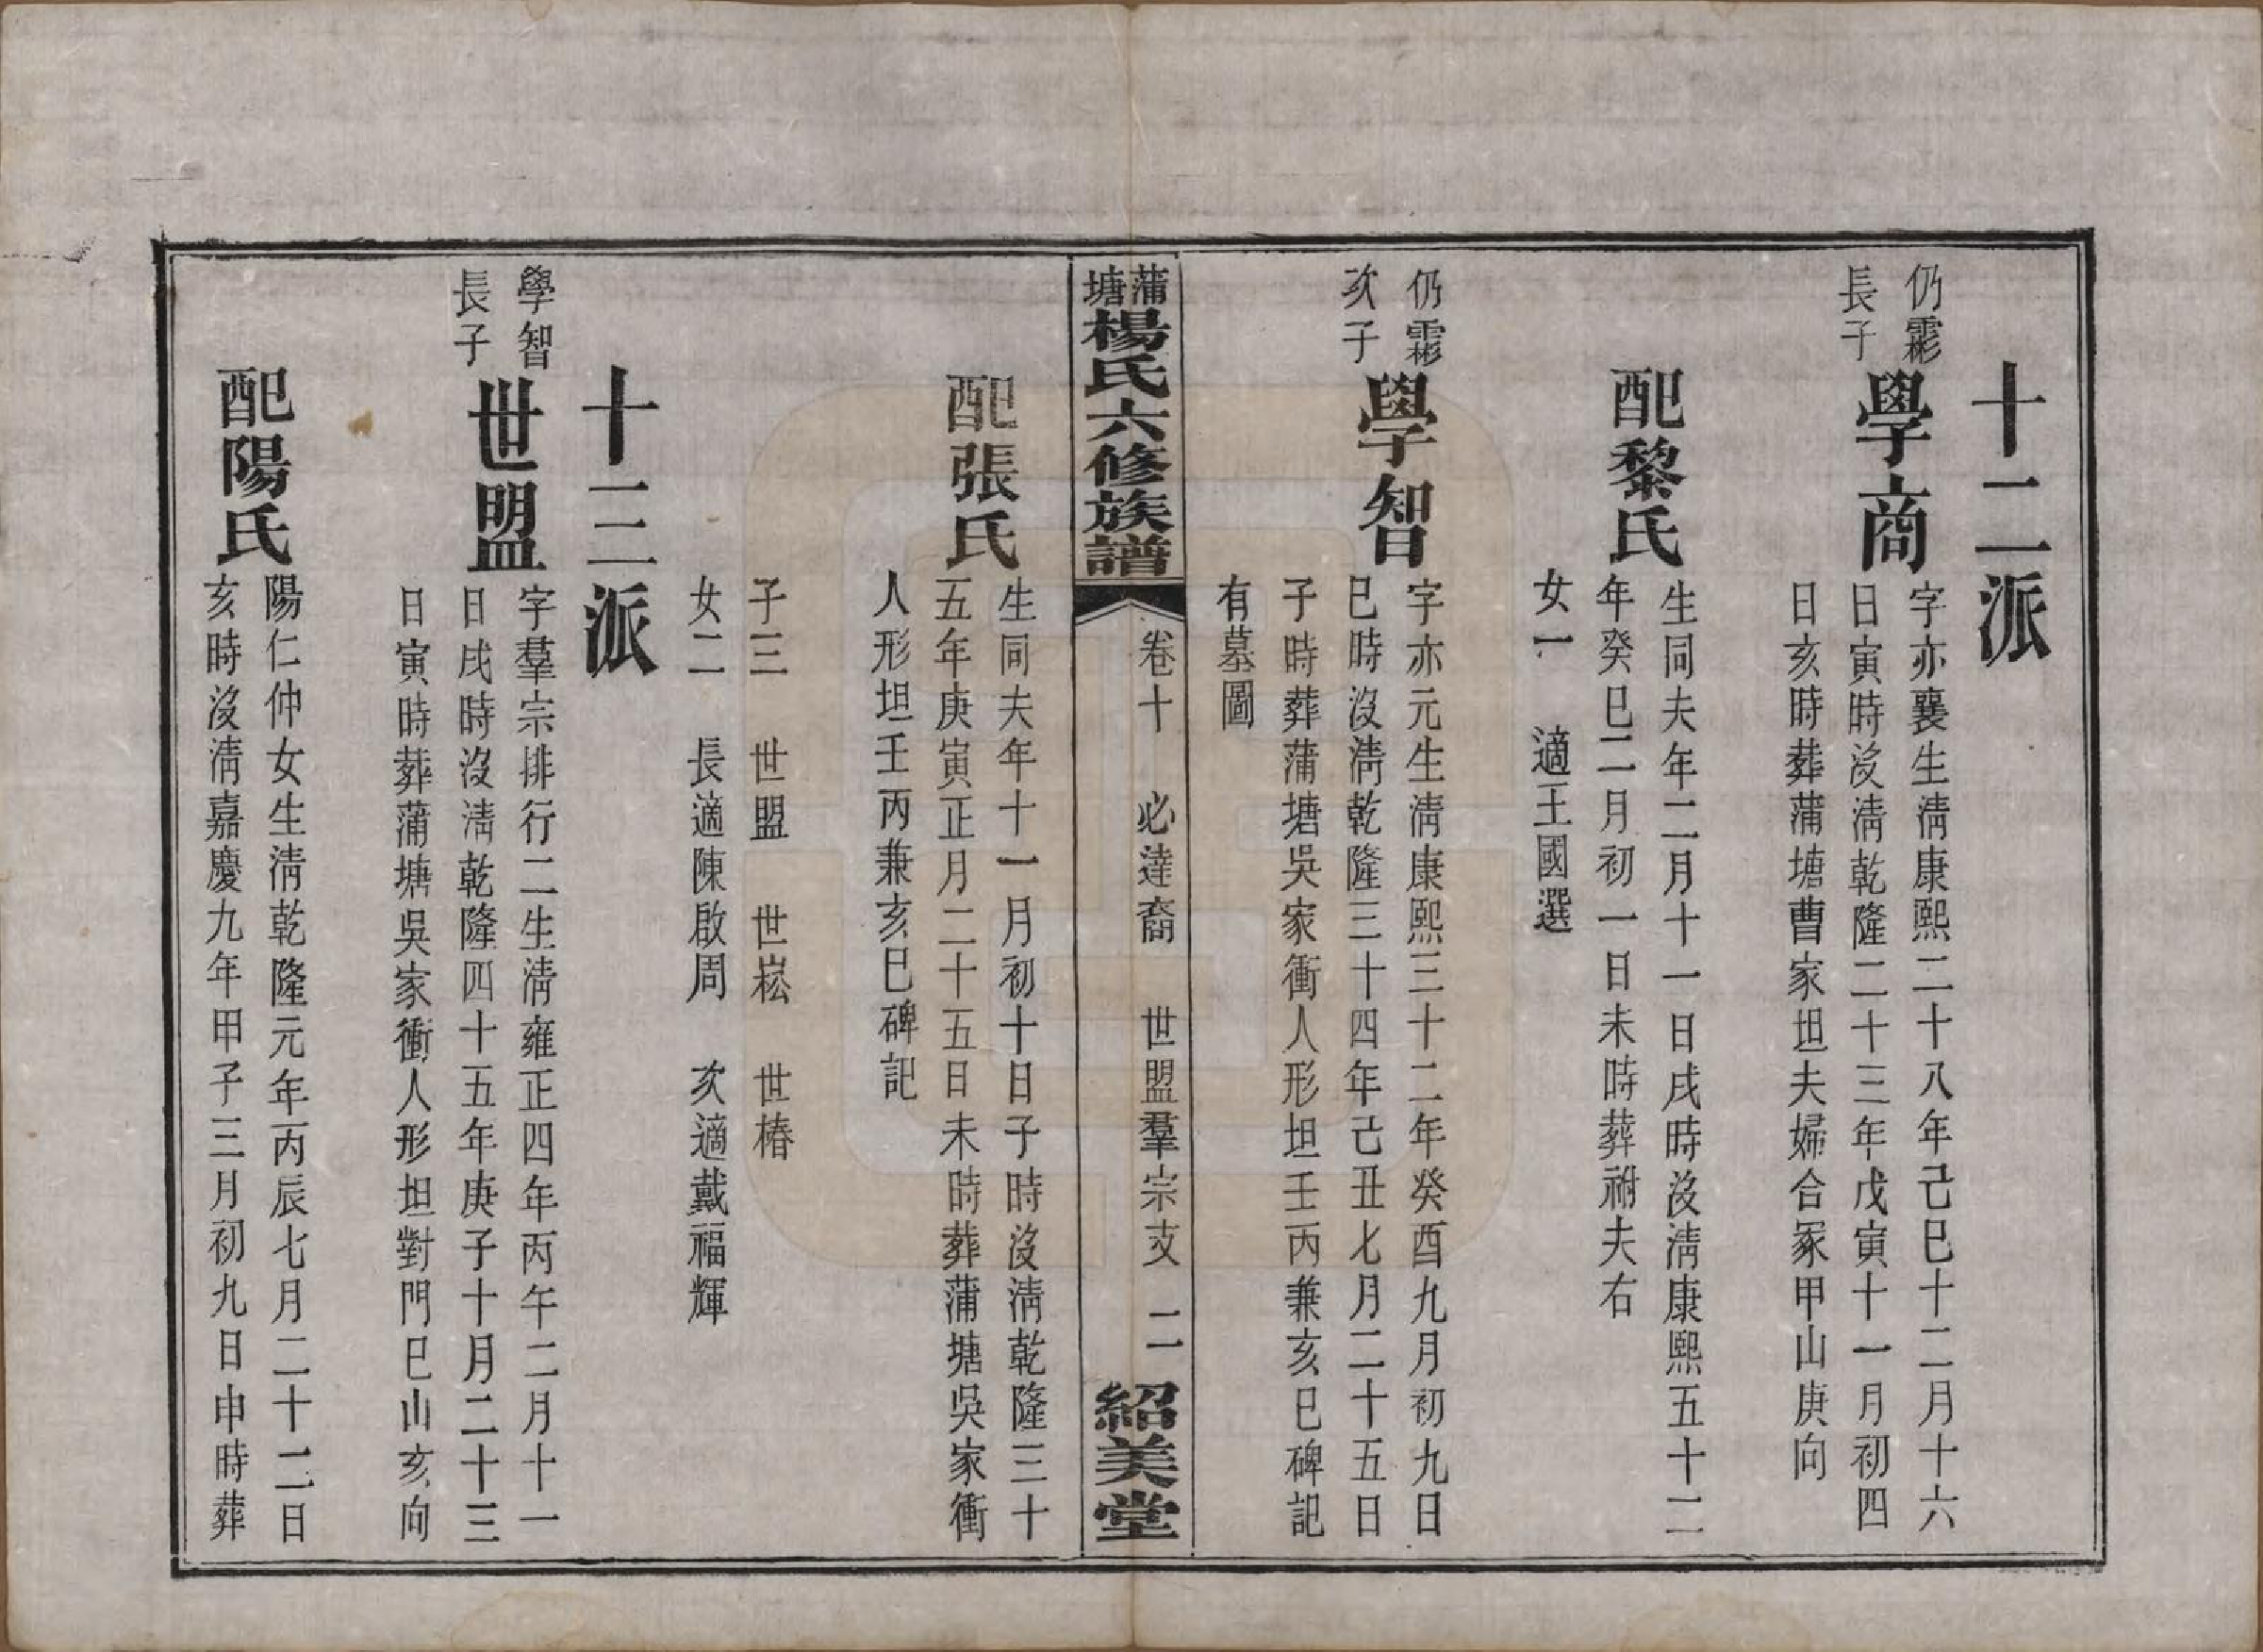 十二派
仍霦
長子
學商
字亦襄生淸康熙二十八年己巳十二月十六
日寅時沒淸乾隆二十三年戊寅十一月初四
日亥時葬蒲塘曹家坦夫婦合冢甲山庚向
配黎氏
生同夫年二月十一日戌時沒淸康熙五十二
年癸巳二月初一日未時葬祔夫右
女一　適王國選
仍霦
次子
學智
字亦元生淸康熙三十二年癸酉九月初九日
巳時沒淸乾隆三十四年己丑七月二十五日
子時葬蒲塘吳家衝人形坦壬丙兼亥巳碑記
有墓圖
蒲塘楊氏六修族譜　卷十　必達裔　世盟羣宗支　二　紹美堂
配張氏
生同夫年十一月初十日子時沒淸乾隆三十
五年庚寅正月二十五日未時葬蒲塘吳家衝
人形坦壬丙兼亥巳碑記
子三　世盟　世崧　世椿
女二　長適陳啟周　次適戴福輝
十三派
學智
長子
世盟
字羣宗排行二生淸雍正四年丙午二月十一
日戌時沒淸乾隆四十五年庚子十月二十三
日寅時葬蒲塘吳家衝人形坦對門巳山亥向
配陽氏
陽仁仲女生淸乾隆元年丙辰七月二十二日
亥時沒淸嘉慶九年甲子三月初九日申時葬